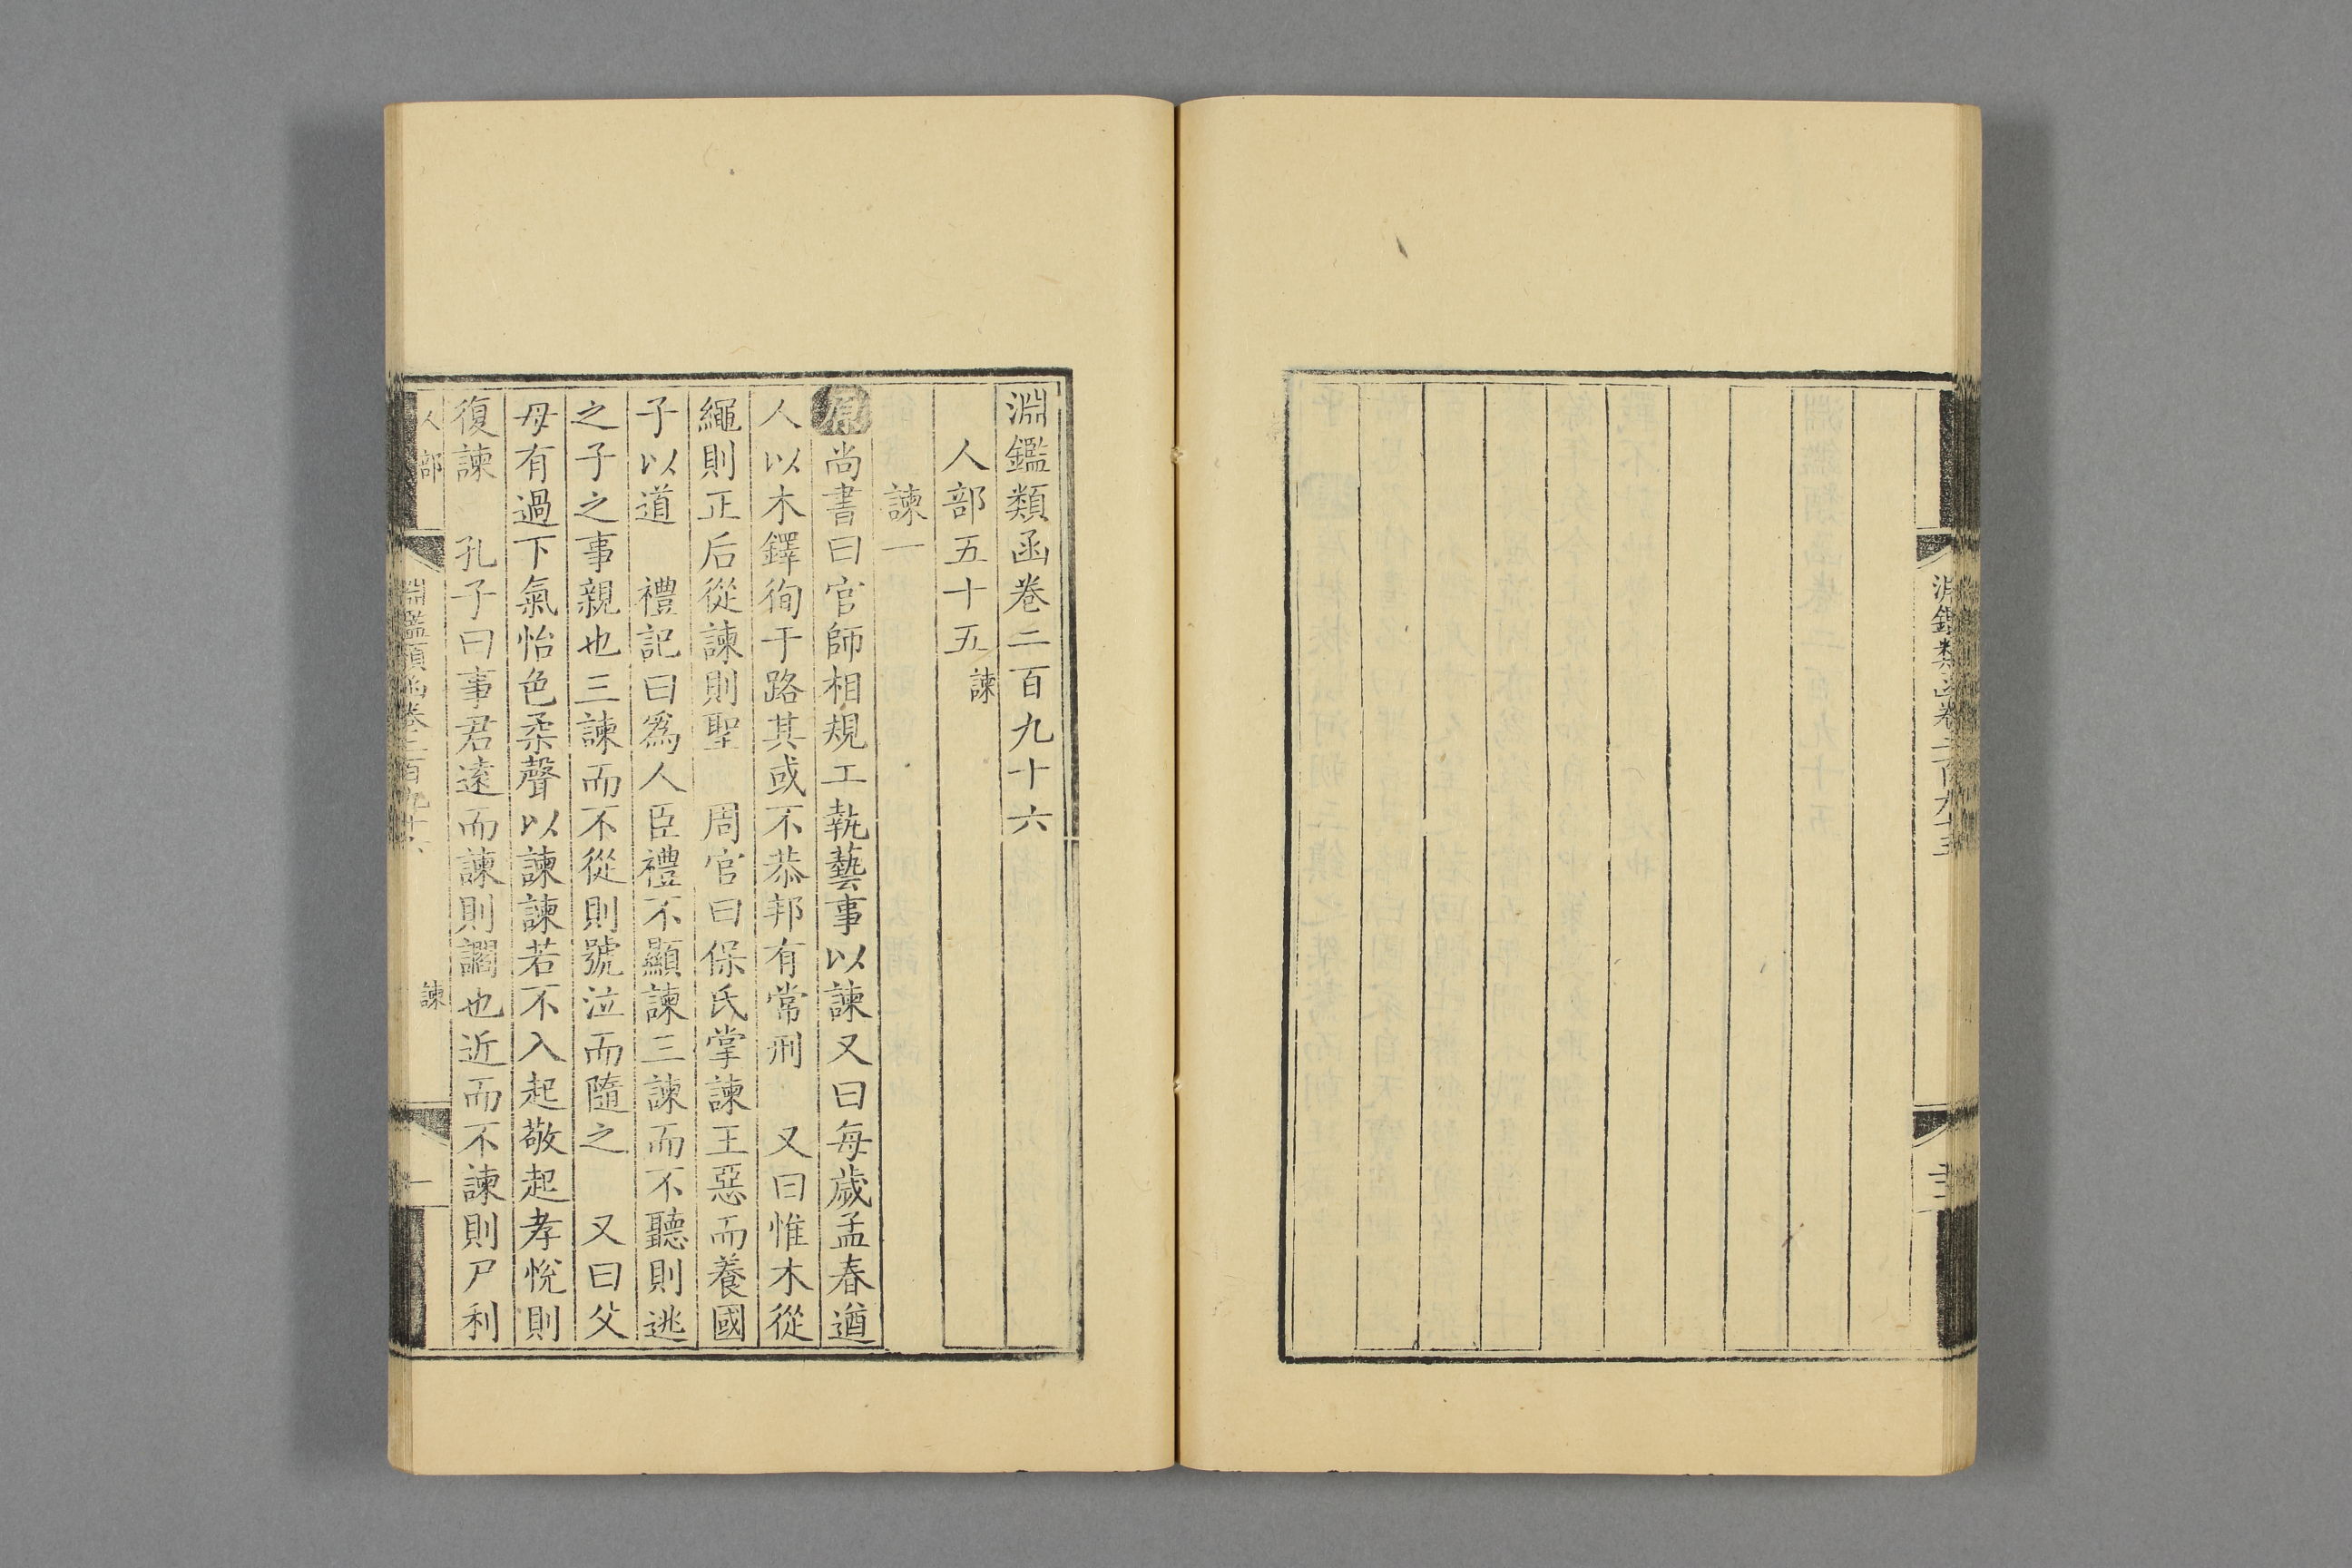 淵鑑類函卷二百九十五
淵鑑類函卷二百九十六
人部五十五 諫
諫一
原尚書曰官師相規工執藝事以諫又曰每歲孟春遒
人以木鐸徇于路其或不恭邦有常刑 又曰惟木從
繩則正后從諫則聖 周官曰保氏掌諫王惡而養國
子以道 禮記曰爲人臣禮不顯諫三諫而不聽則逃
之子之事親也三諫而不從則號泣而隨之 又曰父
母有過下氣怡色柔聲以諫諫若不入起敬起孝悅則
復諫 孔子曰事君遠而諫則讇也近而不諫則尸利
人部 淵鑑類函卷二百九十六 諫 一